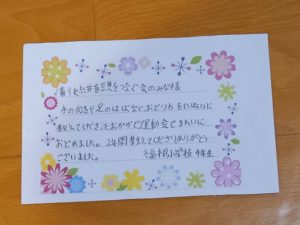 をつなぐ会のみな様
手の向きや足のはばなど、おどり方をていねいに
教えてくださったおかげで運動会できれいに
おどれました。2年間教えてくださりありがとう
ございました。 小学校 4年生